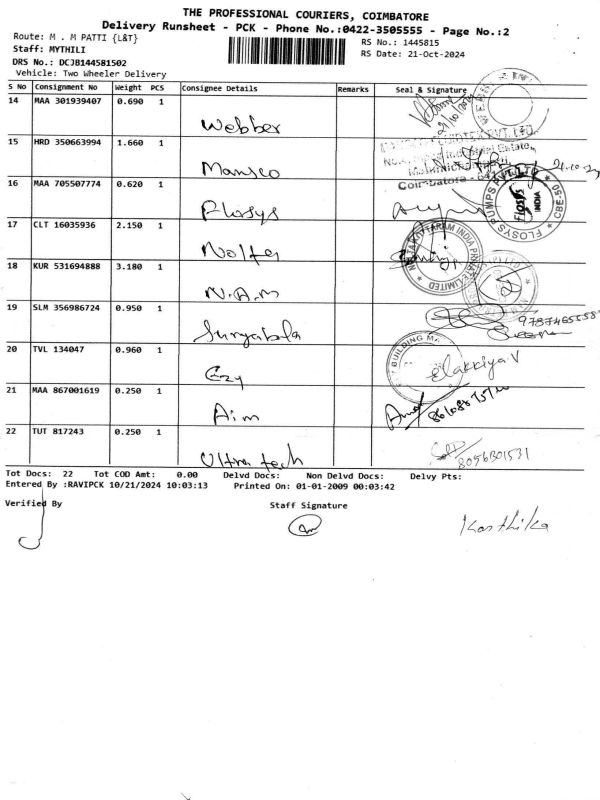 THE PROFESSIONAL COURIERS, COIMBATORE
Delivery Runsheet - PCK - Phone No.:0422-3505555 - Page No.:2
Route: M . M PATTI {L&T}
RS No.: 1445815
Staff: MYTHILI
RS Date: 21-Oct-2024
DRS No.: DCJB144581502
Vehicle: Two Wheeler Delivery
S No Consignment No Weight PCS Consignee Details Remarks Seal & Signature
14 MAA 301939407 0.690 1 Webber
15 HRD 350663994 1.660 1 Manseo
Coimbatore
16 MAA 705507774 0.620 1 Flosys
FLOSYS PUMPS PVT LTD CBE-50
FLOSYS INDIA
17 CLT 16035936 2.150 1 Nolta
18 KUR 531694888 3.180 1 N.A.M
19 SLM 356986724 0.950 1 Suryabala
20 TVL 134047 0.960 1 Ezy
BUILDING
elakkiya V
21 MAA 867001619 0.250 1 Aim
22 TUT 817243 0.250 1 Ultra tech
8056301531
Tot Docs: 22 Tot COD Amt: 0.00 Delvd Docs: Non Delvd Docs: Delvy Pts:
Entered By :RAVIPCK 10/21/2024 10:03:13 Printed On: 01-01-2009 00:03:42
Verified By Staff Signature
Karthika